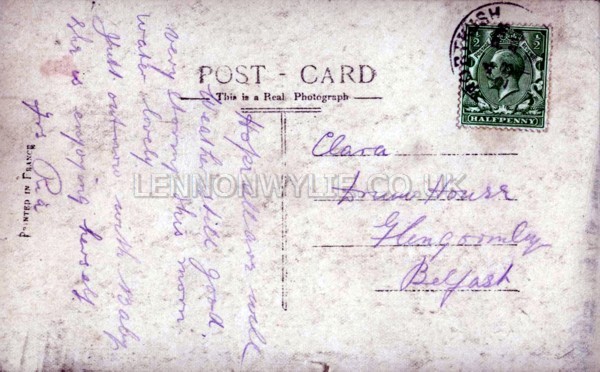 POST - CARD
This is a Real Photograph
PRINTED IN FRANCE
Hope all are well
Weather still good.
very stormy this morn
water lovely
Just out now with Baby
She is enjoying herself
Clara
House
Glengormley
Belfast
HALFPENNY
½
½
LENNONWYLIE.CO.UK